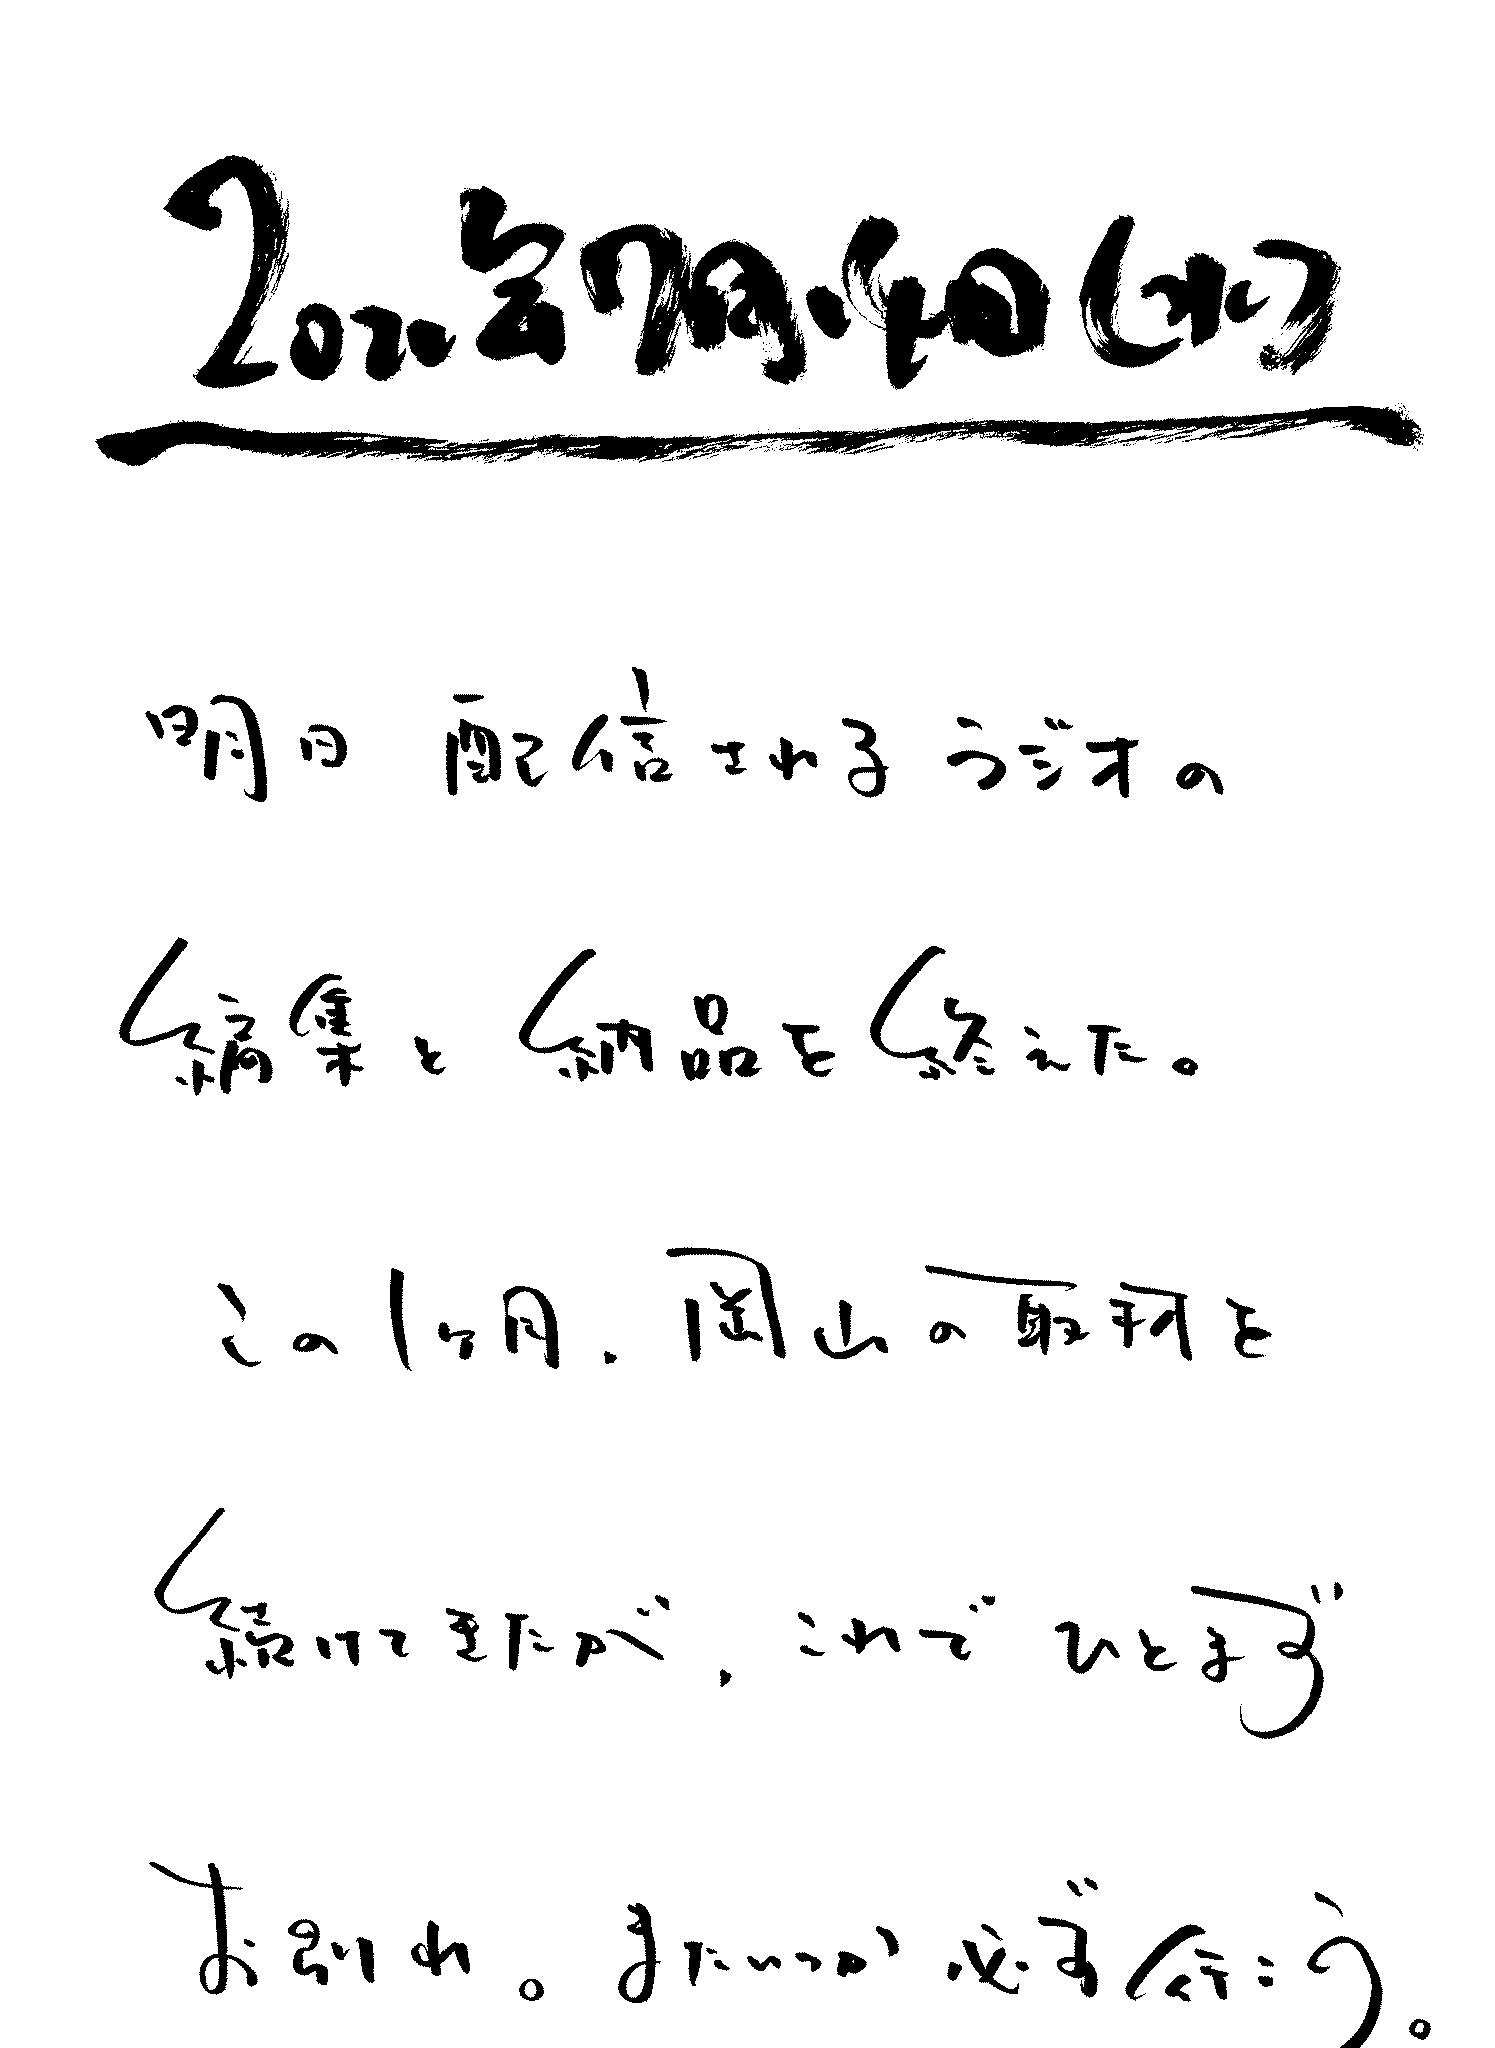 2021年7月14日(水)
明日 配信される ラジオの
編集と 納品を 終えた。
この1ヶ月、岡山の取材を
続けてきたが、これで ひとまず
お別れ。またいつか 必ず 行こう。